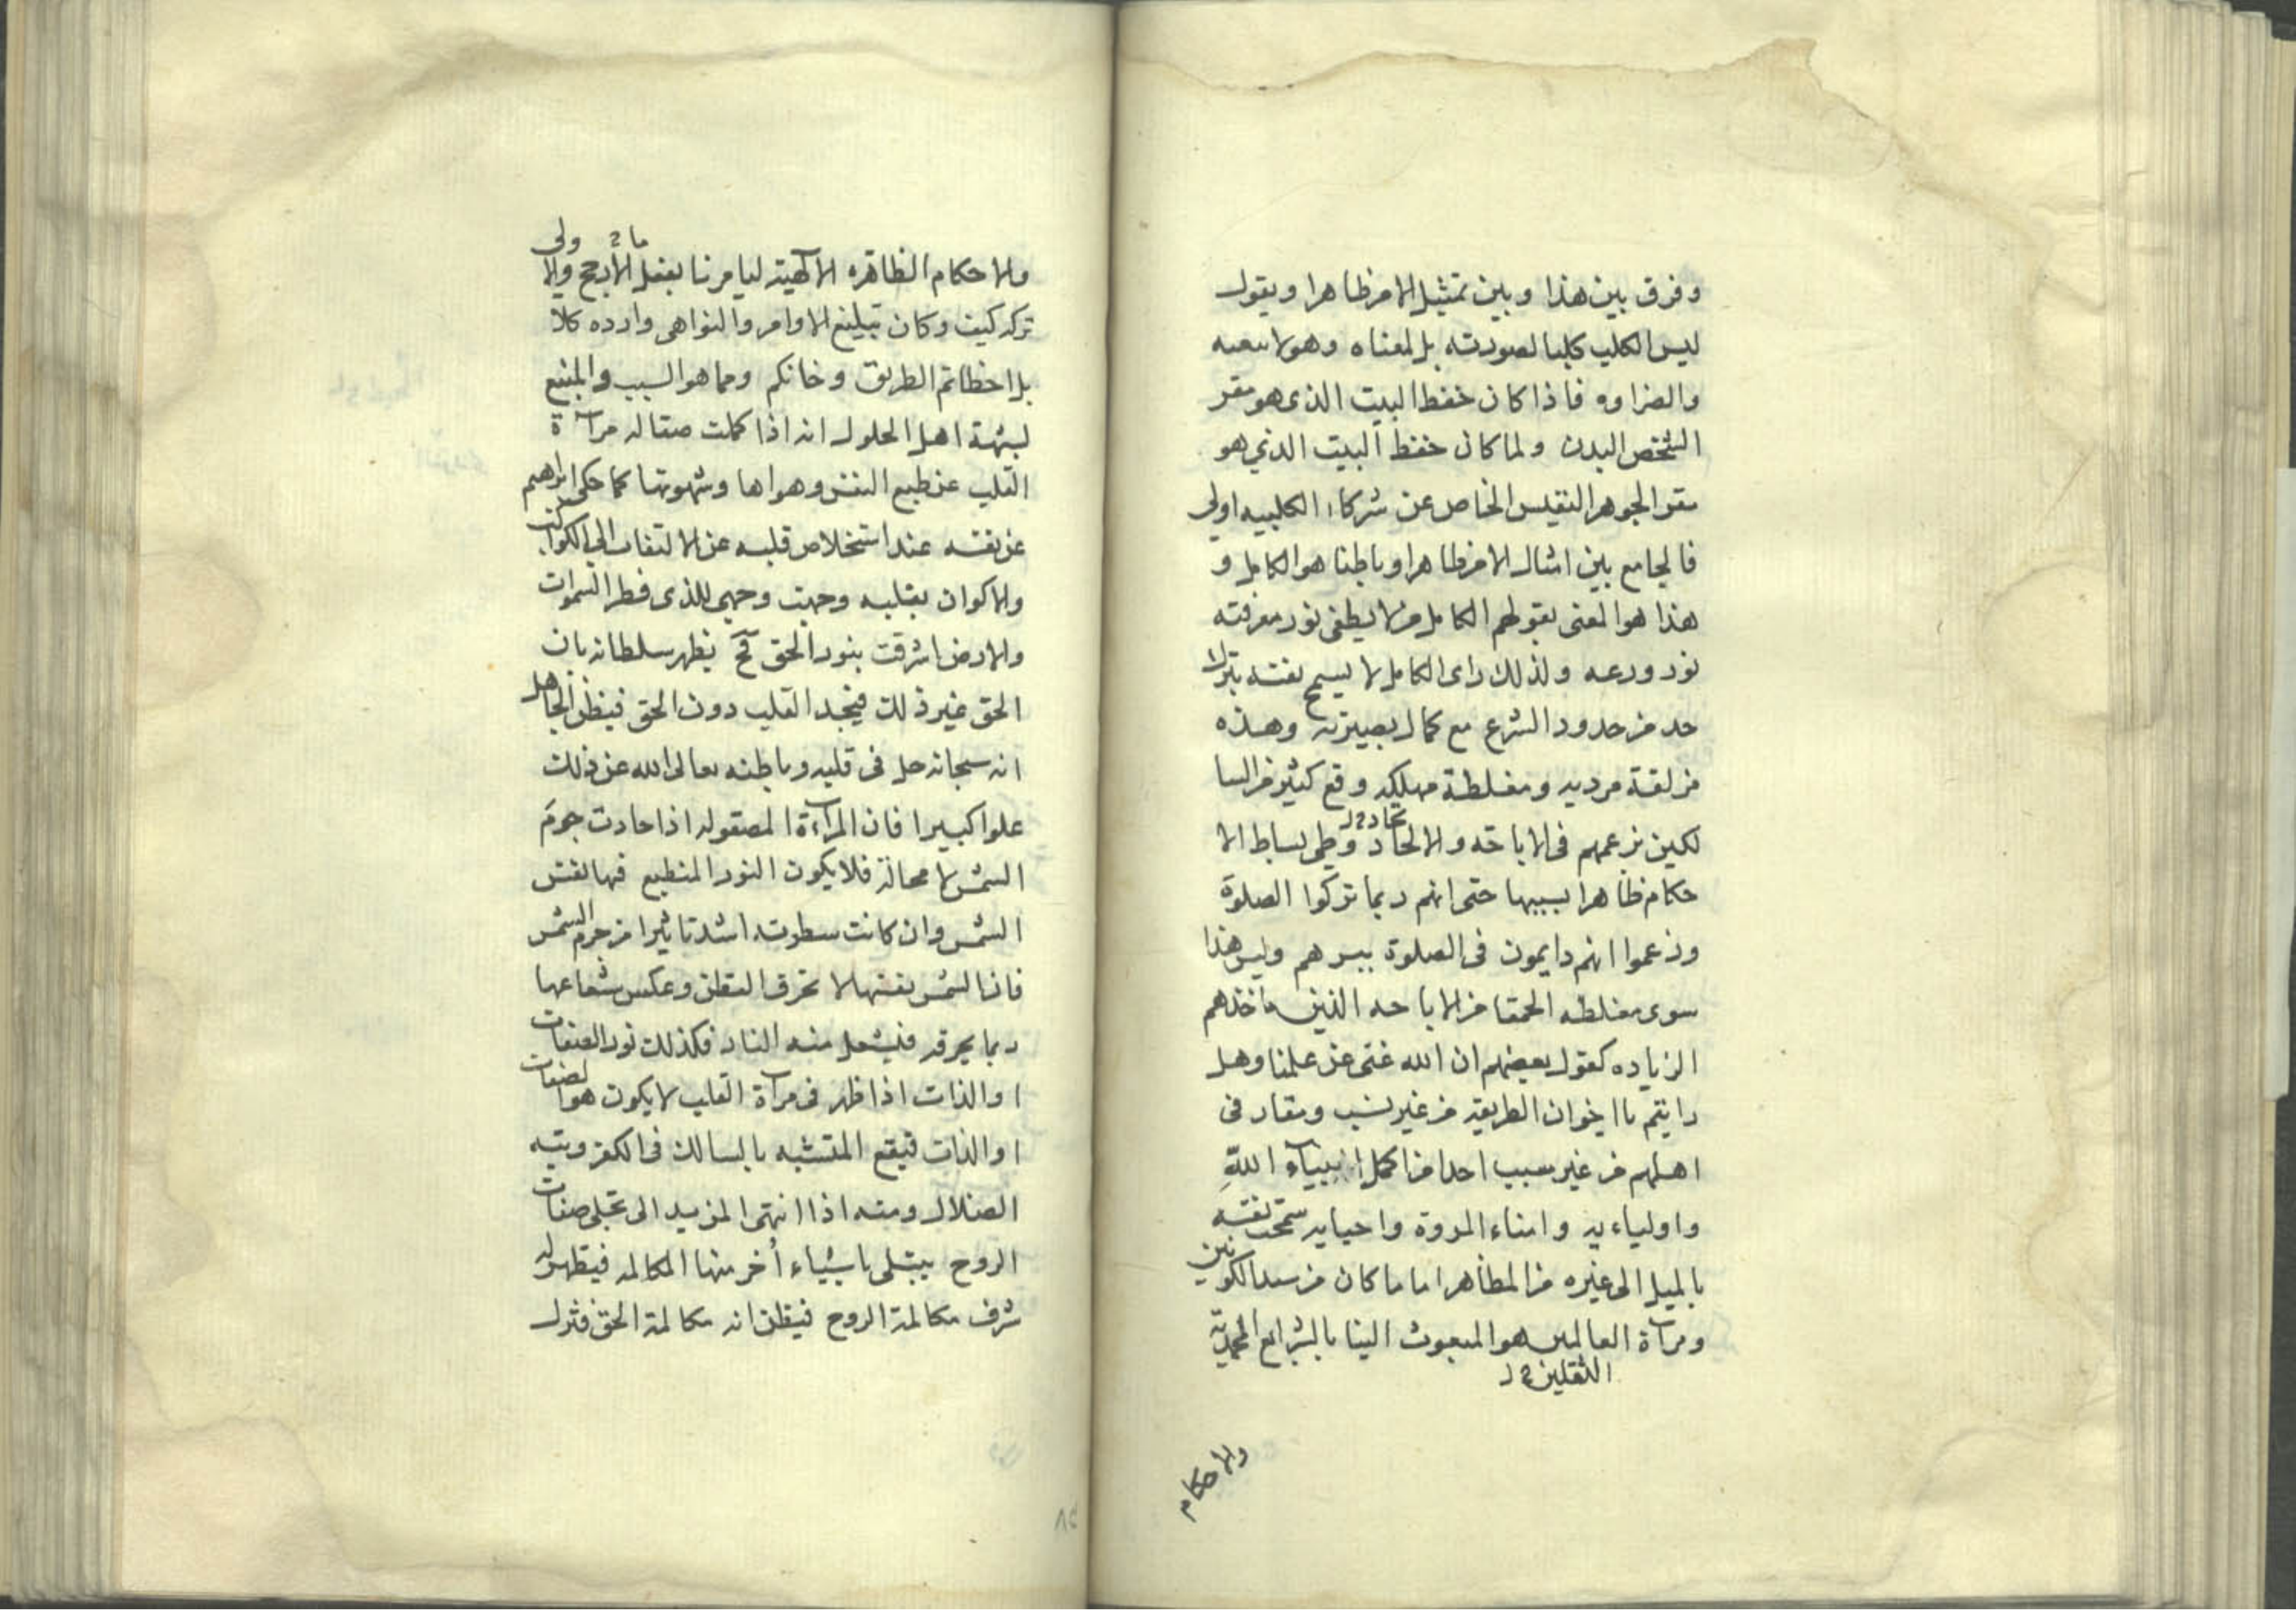 وفرق بين هذا وبين تمثيل الامر ظاهرا ويقول
ليس الكلب كلبا لصورته بل لمعناه وهو السبعيه
والضراوه فاذا كان حفظ البيت الذى هو مقر
الشخص البدن ولما كان حفظ البيت الذي هو
مقر الجوهر النفيس الخاص عن شركاء الكلبيه اولى
فالجامع بين امثال الامر ظاهرا وباطنا هو الكامل و
هذا هو المعنى بقولهم الكامل من لا يطفى نور معرفته
نور ورعه ولذلك راى الكامل لا يسمح نفسه بترك
حد من حدود الشرع مع كمال بصيرته وهذه
مزلقة مرديه ومغلطة مهلكه وقع كثير من السا
لكين بزعمهم فى الاباحه والالحاد وطى بساط الا
تحاد 2 لـ
حكام ظاهرا بسببها حتى انهم ربما تركوا الصلوة
وزعموا انهم دايمون فى الصلوة بسرهم وليس هذا
سوى مغلطه الحمقا من الاباحه الذين ماخذهم
الزياده كقول بعضهم ان الله غنى عن علمنا وهل
رايتم يا اخوان الطريقه من غير نسب ومقار فى
اهلهم من غير سبب احدا من اكمل انبياء الله
واولياءيه وامناء المروة واحبايه سمحت نفسه
بالميل الى غيره من المظاهر اما ما كان من سيد الكونين
ومرآة العالمين هو المبعوث الينا بالشرايع المحمديه
الثقلين 2 لـ
والاحكام
ما 2 ولى
والاحكام الظاهره الالهية ليامرنا بفعل الارجح والا
تركه كيف وكان تبليغ الاوامر والنواهى وارده كلا
بل اخطاتم الطريق وخانكم ومما هو السبب والمنبع
لشبهة اهل الحلول انه اذا كملت صقاله مرآة
القلب عن طبع النفس وهواها وشهوتها كما حكى ابراهيم
عن نفسه عند استخلاص قلبه عن الالتفات الى الكواكب
والاكوان بقلبه وجهت وجهى للذى فطر السموات
والارض اشرقت بنور الحق فح يظهر سلطانه بان
الحق غير ذلك فيجد القلب دون الحق فيظن الجاهل
انه سبحانه حل فى قلبه وباطنه تعالى الله عن ذلك
علوا كبيرا فان المرآة المصقوله اذا حاذت جرم
الشمس لا محالة فلا يكون النور المنطبع فيها نفس
الشمس وان كانت سطوته اشد تاثيرا من جرم الشمس
فان الشمس بنفسها لا تحرق القطن وعكس شعاعها
ربما يحرقه فيشعل منه النار فكذلك نور الصفات
او الذات اذا ظهر فى مرآة القلب لا يكون هو الصفات
او الذات فيقع المتشبه بالسالك فى الكفر وتيه
الضلال ومنه اذا انتهى المزيد الى تجلى صفات
الروح يبتلى باشياء أخر منها المكالمه فيظهر له
شرف مكالمة الروح فيظن انه مكالمة الحق فنزل